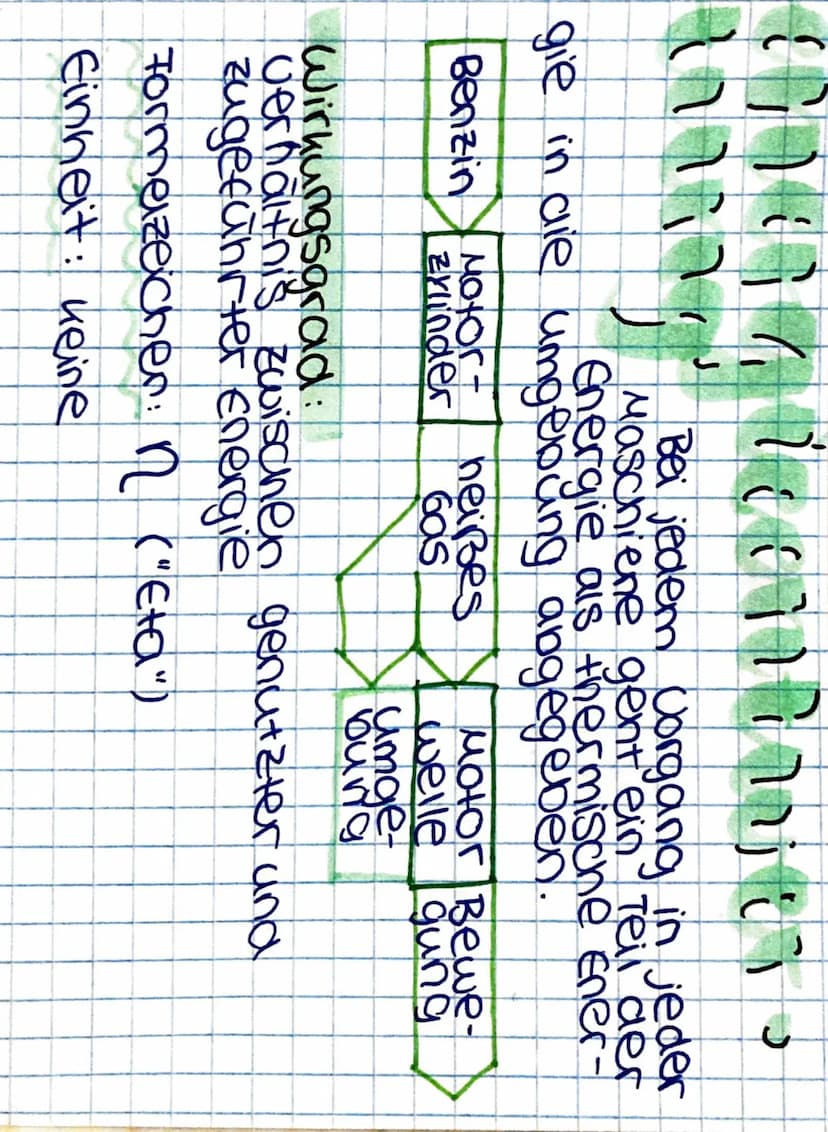 Bei jedem Vorgang in jeder
Maschiene geht ein Teil der
Energie als thermische Ener-
gie in die Umgebung abgegeben.
Benzin
Motor-
zylinder
heißes
Gas
Motor
welle
Bewe-
gung
Umge-
bung
Wirkungsgrad:
Verhältnis zwischen genutzter und
zugeführter Energie
Formelzeichen: η ("Eta")
Einheit: keine